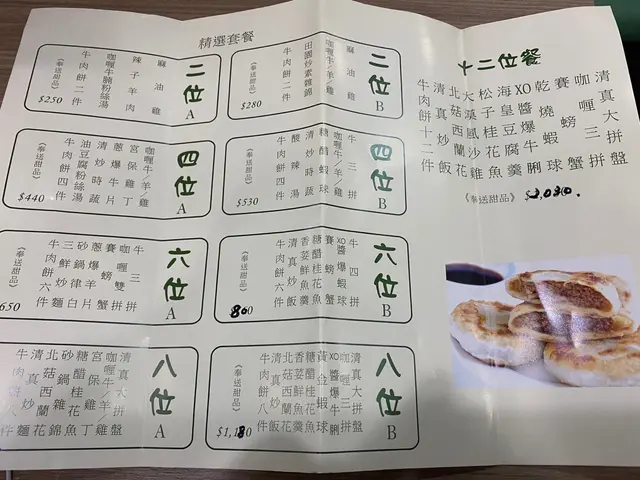 精選套餐
二位
A
麻油雞
辣子羊肉
咖喱牛腩粉絲湯
牛肉餅二件
《奉送甜品》
$250
二位
B
麻油雞
咖喱牛/羊/雞
田園炒素雜錦
牛肉餅二件
《奉送甜品》
$280
四位
A
咖喱牛/羊/雞
宮保雞丁
蔥爆牛片
清炒時蔬
油豆腐粉絲湯
牛肉餅四件
《奉送甜品》
$440
四位
B
牛三拼
咖喱牛/羊/雞
糖醋蝦球
清炒時蔬
酸辣湯
牛肉餅四件
《奉送甜品》
$530
六位
A
牛三拼
咖喱雙拼
賽螃蟹
蔥爆牛片
三鮮炒麵
牛肉餅六件
《奉送甜品》
650
六位
B
牛四拼
XO醬爆蝦球
賽螃蟹
糖醋桂花魚
香荽鮮魚羹
清真炒飯
牛肉餅六件
《奉送甜品》
860
八位
A
清真大拼盤
咖喱牛/羊/雞
宮保雞丁
糖醋桂花魚
砂鍋雜錦
北菇西蘭花
清真炒麵
牛肉餅八件
八位
B
清真大拼盤
咖喱三拼
XO醬爆牛脷
黃金蝦球
糖醋桂花魚
香荽鮮魚羹
北菇西蘭花
清真炒飯
牛肉餅八件
《奉送甜品》
$1,180
十二位餐
清真大拼盤
咖喱三拼
賽螃蟹
乾燒蝦球
XO醬爆牛脷
海皇豆腐羹
松子桂花魚
大漠風沙雞
北菇西蘭花
清真炒飯
牛肉餅十二件
《奉送甜品》